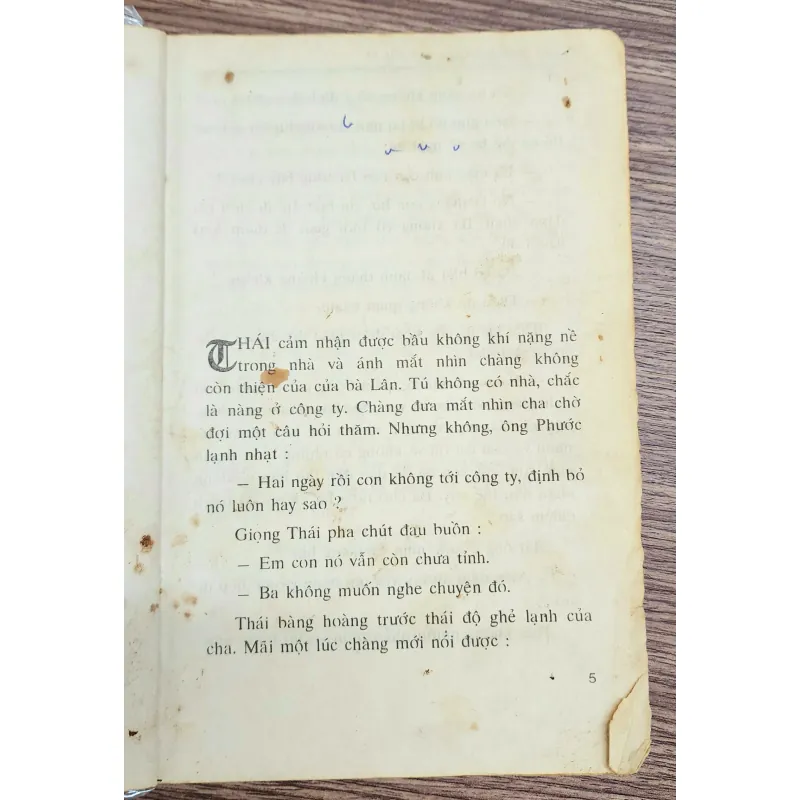 THÁI cảm nhận được bầu không khí nặng nề
trong nhà và ánh mắt nhìn chàng không
còn thiện của của bà Lân. Tú không có nhà, chắc
là nàng ở công ty. Chàng đưa mắt nhìn cha chờ
đợi một câu hỏi thăm. Nhưng không, ông Phước
lạnh nhạt :
— Hai ngày rồi con không tới công ty, định bỏ
nó luôn hay sao ?
Giọng Thái pha chút đau buồn :
— Em con nó vẫn còn chưa tỉnh.
— Ba không muốn nghe chuyện đó.
Thái bàng hoàng trước thái độ ghẻ lạnh của
cha. Mãi một lúc chàng mới nói được :
5